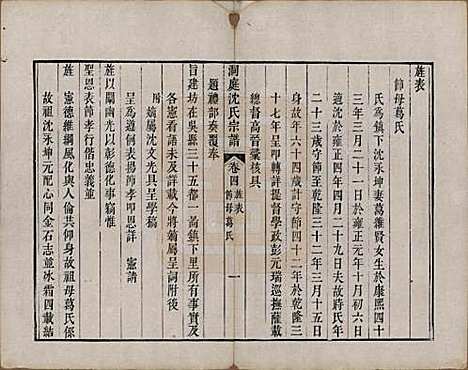 旌表
節母葛氏
氏爲鎮下沈永坤妻葛維賢女生於康熙四十
三年三月二十一日於雍正元年十月初六日
適沈於雍正四年四月二十九日夫故蔣氏年
二十三歲守節至乾隆三十二年三月十五日
身故年六十四歲計守節四十二年於乾隆三
十七年呈甲轉詳提督學政彭元瑞巡撫薩載
總督高晉彙核具
洞庭沈氏宗譜
卷四
旌表
節母葛氏
一
題禮部奏覆奉
旨建坊在吳縣三十都一啚鎮下里所有事實及
各憲看語未及詳載今將嫡屬呈詞附後
附嫡屬沈文光具呈學稿
呈爲遵例表揚節孝叩恩詳
憲請
旌以闡南光以彰德化事竊惟
聖恩表節孝行偕忠義並
旌
憲德維綱風化與人倫其仰身故祖母葛氏係
故祖沈永坤元配心同金石志並冰霜四載結